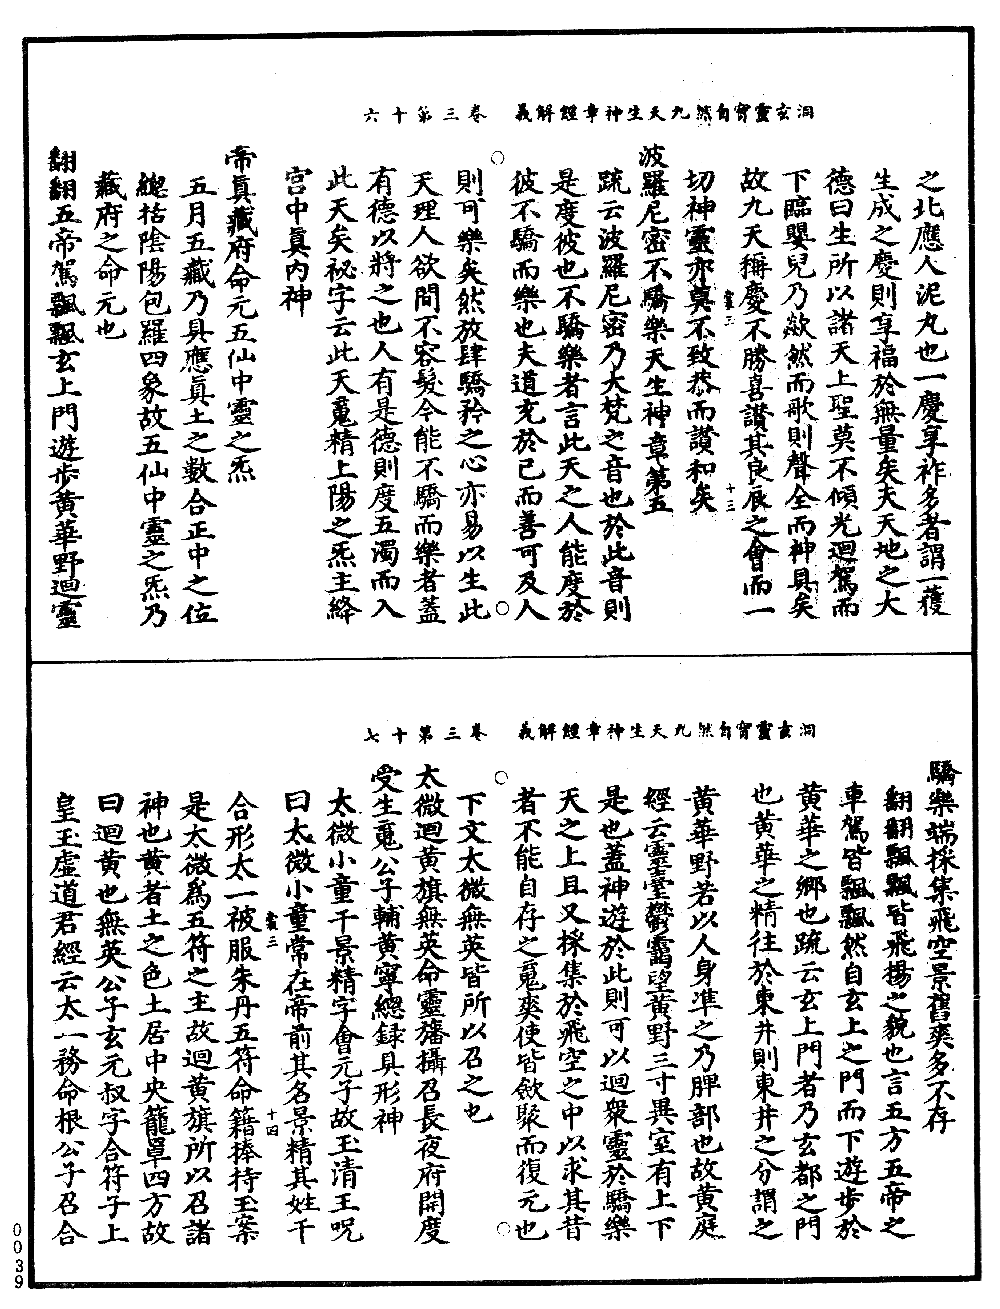 洞玄靈寶自然九天生神章經解義 卷三第十六
之北應人泥丸也一慶享祚多者謂一獲
生成之慶則享福於無量矣夫天地之大
德曰生所以諸天上聖莫不傾光迴駕而
下臨嬰兒乃歘然而歌則聲全而神具矣
故九天稱慶不勝喜讃其良辰之會而一
霊三 十三
切神靈亦莫不致恭而讃和矣
波羅尼密不驕樂天生神章第五
䟽云波羅尼密乃大梵之音也於此音則
是度彼也不驕樂者言此天之人能度於
彼不驕而樂也夫道充於已而善可及人
則可樂矣然放肆驕矜之心亦易以生此
天理人欲間不容髮今能不驕而樂者蓋
有德以將之也人有是德則度五濁而入
此天矣祕字云此天䰟精上陽之炁主絳
宮中真内神
帝真藏府命元五仙中靈之炁
五月五藏乃具應真土之數合正中之位
緫括陰陽包羅四象故五仙中靈之炁乃
藏府之命元也
翩翩五帝駕飄飄玄上門遊步黄華野迴靈
洞玄靈寶自然九天生神章經解義 卷三第十七
驕樂端採集飛空景舊爽多不存
翩翩飄飄皆飛揚之貌也言五方五帝之
車駕皆飄飄然自玄上之門而下遊步於
黄華之鄉也䟽云玄上門者乃玄都之門
也黄華之精往於東井則東井之分謂之
黄華野若以人身準之乃脾部也故黄庭
經云靈臺鬱靄望黄野三寸異室有上下
是也蓋神遊於此則可以迴衆靈於驕樂
天之上且又採集於飛空之中以求其昔
者不能自存之䰟爽使皆歛聚而復元也
下文太微無英皆所以召之也
太微迴黄旗無英命靈旛攝召長夜府開度
受生䰟公子輔黄寧緫録具形神
太微小童干景精字會元子故玉清王呪
曰太微小童常在帝前其名景精其姓干
霊三 十四
合形太一被服朱丹五符命籍捧持玉案
是太微爲五符之主故迴黄旗所以召諸
神也黄者土之色土居中央籠罩四方故
曰迴黄也無英公子玄元叔字合符子上
皇玉虛道君經云太一務命根公子召合
0039